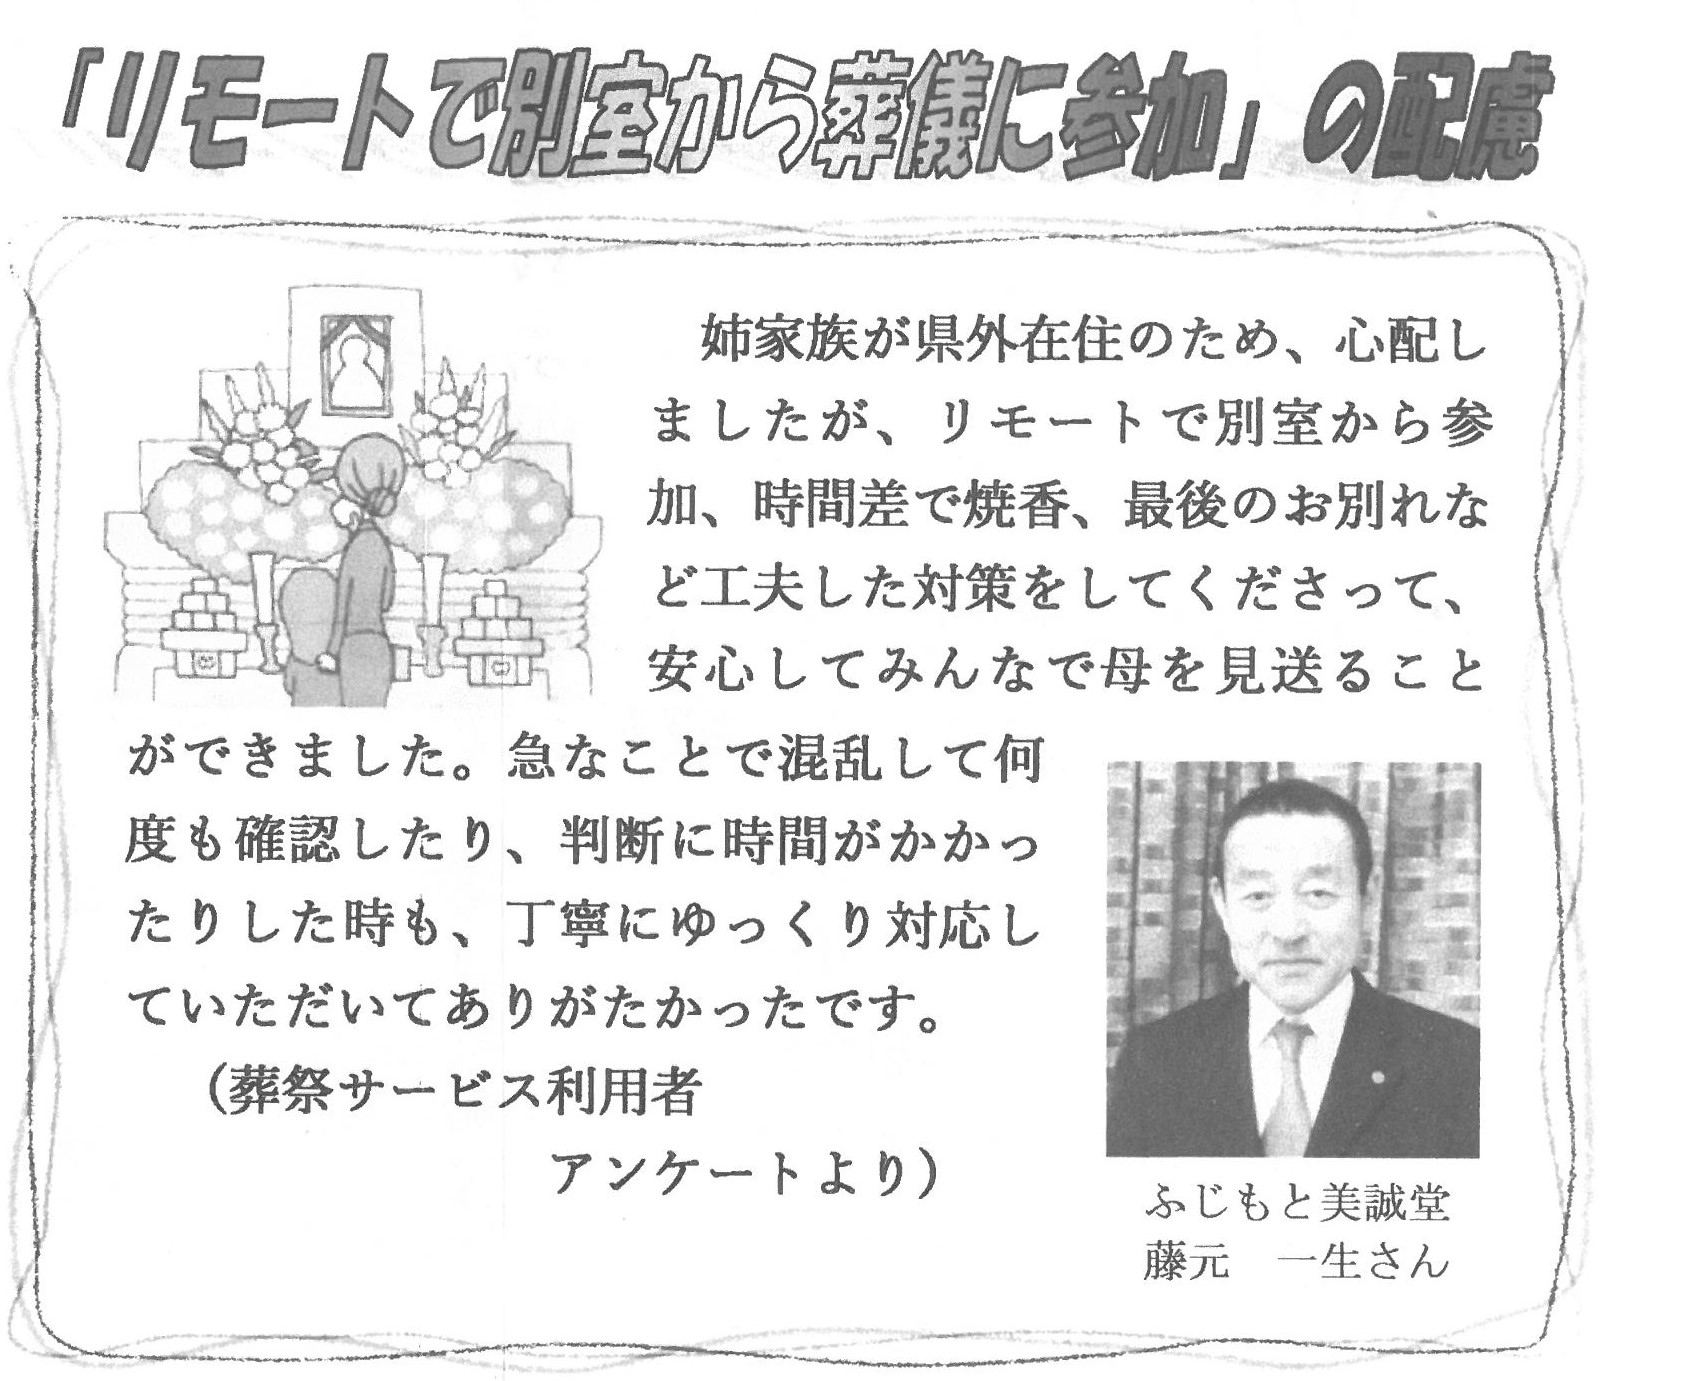 「リモートで別室から葬儀に参加」の配慮
姉家族が県外在住のため、心配し
ましたが、リモートで別室から参
加、時間差で焼香、最後のお別れな
ど工夫した対策をしてくださって、
安心してみんなで母を見送ること
ができました。急なことで混乱して何
度も確認したり、判断に時間がかかっ
たりした時も、丁寧にゆっくり対応し
ていただいてありがたかったです。
（葬祭サービス利用者
アンケートより）
ふじもと美誠堂
藤元　一生さん